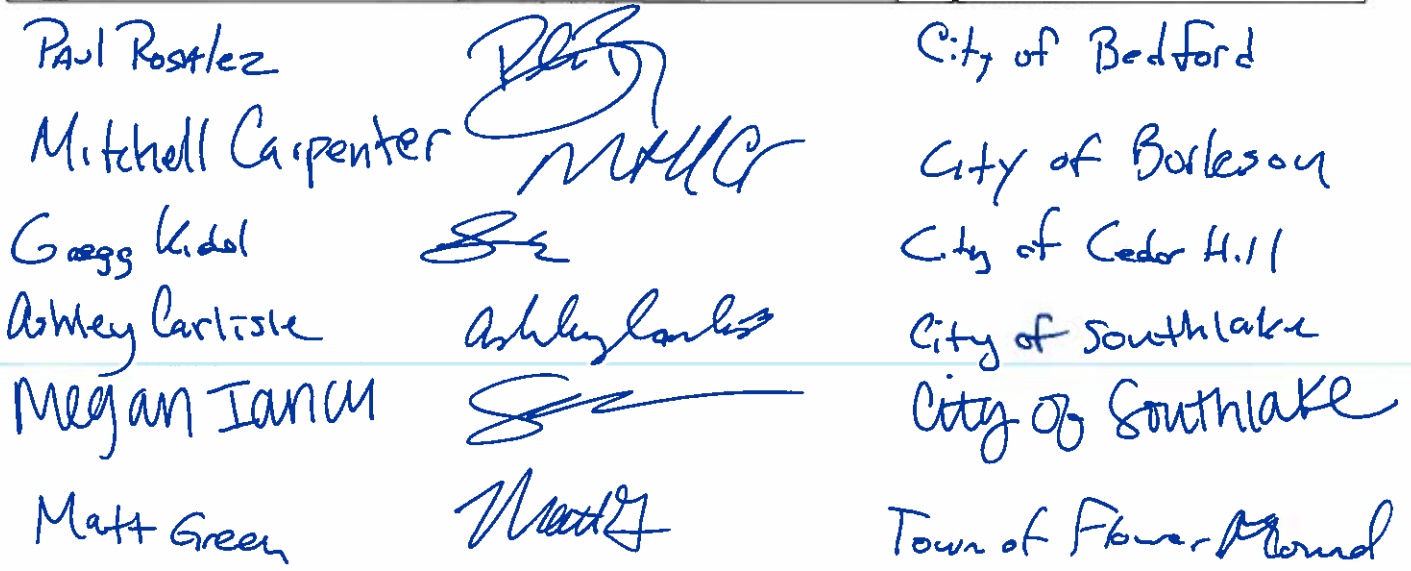 Paul Rosalez City of Bedford
Mitchell Carpenter City of Burleson
Gregg Kidd City of Cedar Hill
Ashley Carlisle Ashley Carlisle City of Southlake
Megan Iancu City of Southlake
Matt Green Matt G Town of Flower Mound